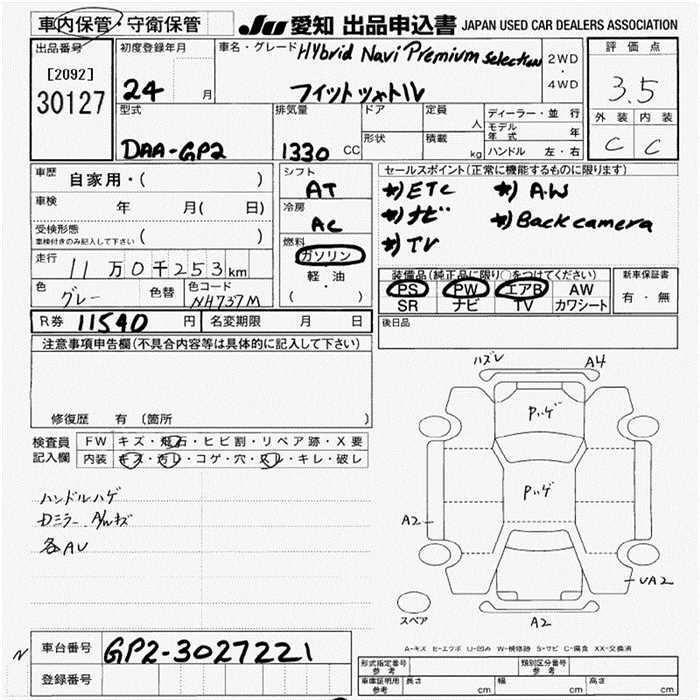 車内保管・守衛保管
JU 愛知 出品申込書 JAPAN USED CAR DEALERS ASSOCIATION
出品番号
[2092]
30127
初度登録年月
24 月
車名・グレード
HYbrid Navi Premium selection
フィットシャトル
2WD
・
4WD
評価点
3.5
外装 内装
C C
型式
DAA-GP2
排気量
1330 CC
ドア
形状
定員 人
積載 kg
ディーラー・並行
モデル年式 年
ハンドル 左・右
車歴 自家用・( )
車検 年 月( 日)
受検形態
車検付きのみ記入して下さい ( )
走行 11万0千253km
色 グレー 色替 色コード NH737M
シフト
AT
冷房
AC
燃料
ガソリン
軽・油
( )
セールスポイント(正常に機能するものに限ります)
*)ETC *)AW
*)ナビ *)Back camera
*)TV
装備品(純正品に限り○をつけてください)
PS PW エアB AW
SR ナビ TV カワシート
新車保証書
有・無
R券 11540 円 名変期限 月 日
後日品
注意事項申告欄(不具合内容等は具体的に記入して下さい)
修復歴 有 (箇所 )
検査員記入欄
FW キズ・飛石・ヒビ割・リペア跡・X要
内装 キズ・汚レ・コゲ・穴・スレ・キレ・破レ
ハンドルハゲ
Dミラー
各AU
ハズレ A4
Pハゲ
Pハゲ
A2
UA2
A2
スペア
A-キズ E-エクボ U-凹み W-補修跡 S-サビ C-腐食 XX-交換済
N
車台番号 GP2-3027221
登録番号
形式指定番号 参考 類別区分番号 参考
車庫証明用 参考 長さ cm 幅 cm 高さ cm